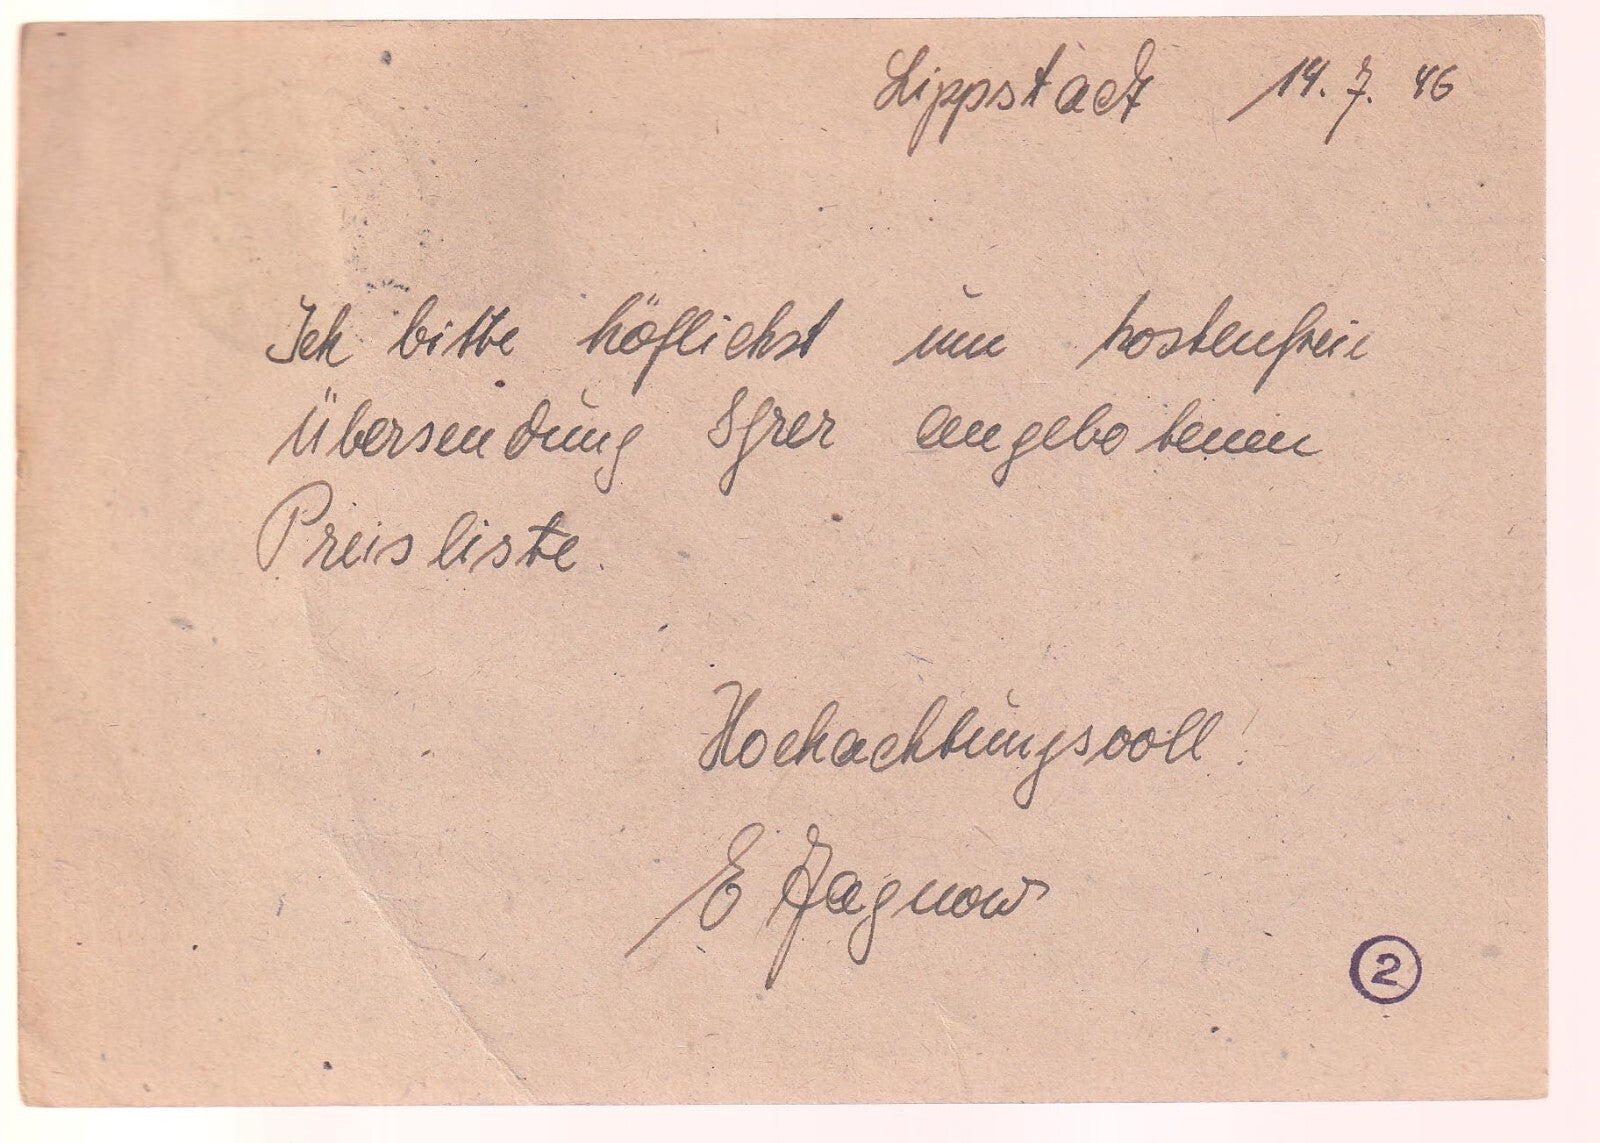 Lippstadt 14. 7. 46
Ich bitte höflichst um kostenfreie
Übersendung Ihrer angebotenen
Preisliste.
Hochachtungsvoll!
E Jagnow
2